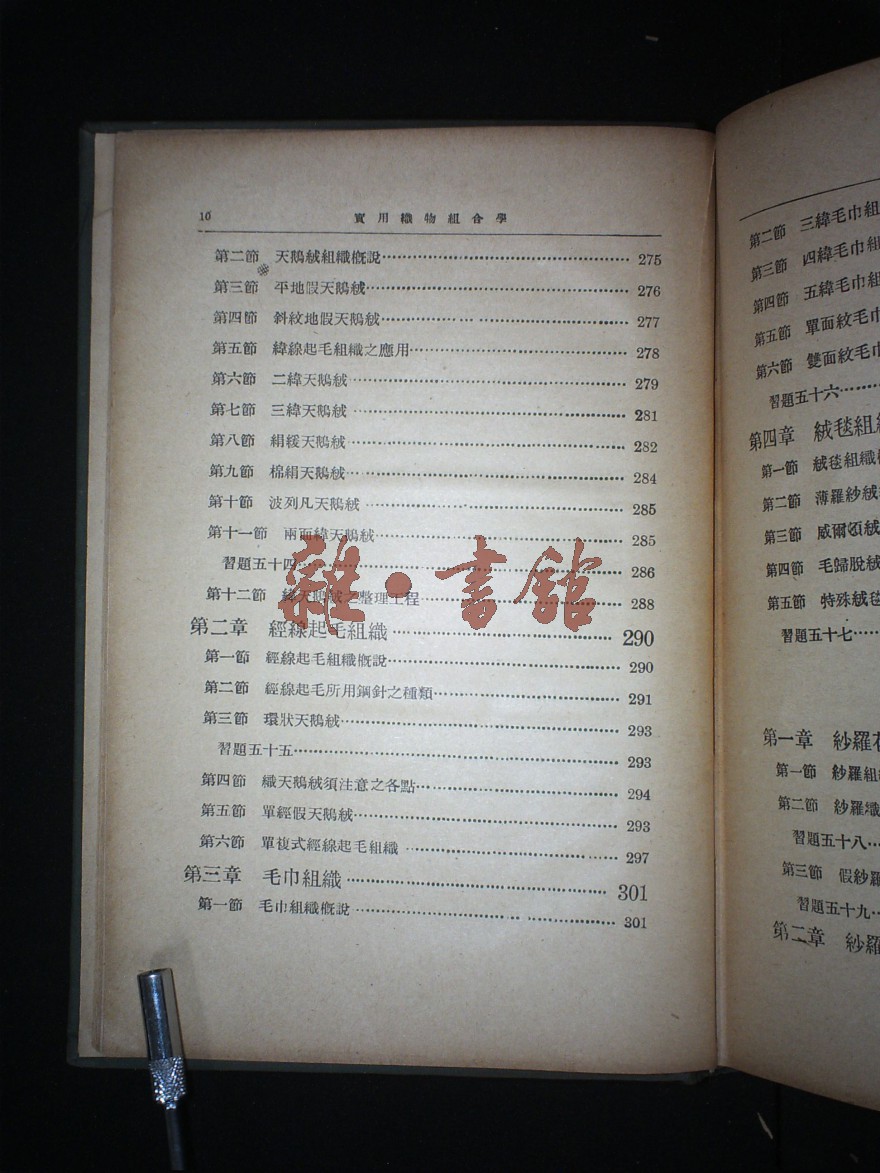 10 實用織物組合學
第二節 天鵝絨組織概說 275
第三節 平地假天鵝絨 276
第四節 斜紋地假天鵝絨 277
第五節 緯線起毛組織之應用 278
第六節 二緯天鵝絨 279
第七節 三緯天鵝絨 281
第八節 絹緩天鵝絨 282
第九節 棉絹天鵝絨 284
第十節 波列凡天鵝絨 285
第十一節 兩面緯天鵝絨 285
習題五十四 286
第十二節 緯天鵝絨之整理工程 288
第二章 經線起毛組織 290
第一節 經線起毛組織概說 290
第二節 經線起毛所用鋼針之種類 291
第三節 環狀天鵝絨 293
習題五十五 293
第四節 織天鵝絨須注意之各點 294
第五節 單經假天鵝絨 293
第六節 單複式經線起毛組織 297
第三章 毛巾組織 301
第一節 毛巾組織概說 301
雜·書館
第二節 三緯毛巾組
第三節 四緯毛巾組
第四節 五緯毛巾組
第五節 單面紋毛巾
第六節 雙面紋毛巾
習題五十六
第四章 絨毯組
第一節 絨毯組織
第二節 薄羅紗絨
第三節 威爾頌絨
第四節 毛歸脫絨
第五節 特殊絨毯
習題五十七
第一章 紗羅
第一節 紗羅組
第二節 紗羅織
習題五十八
第三節 假紗羅
習題五十九
第二章 紗羅